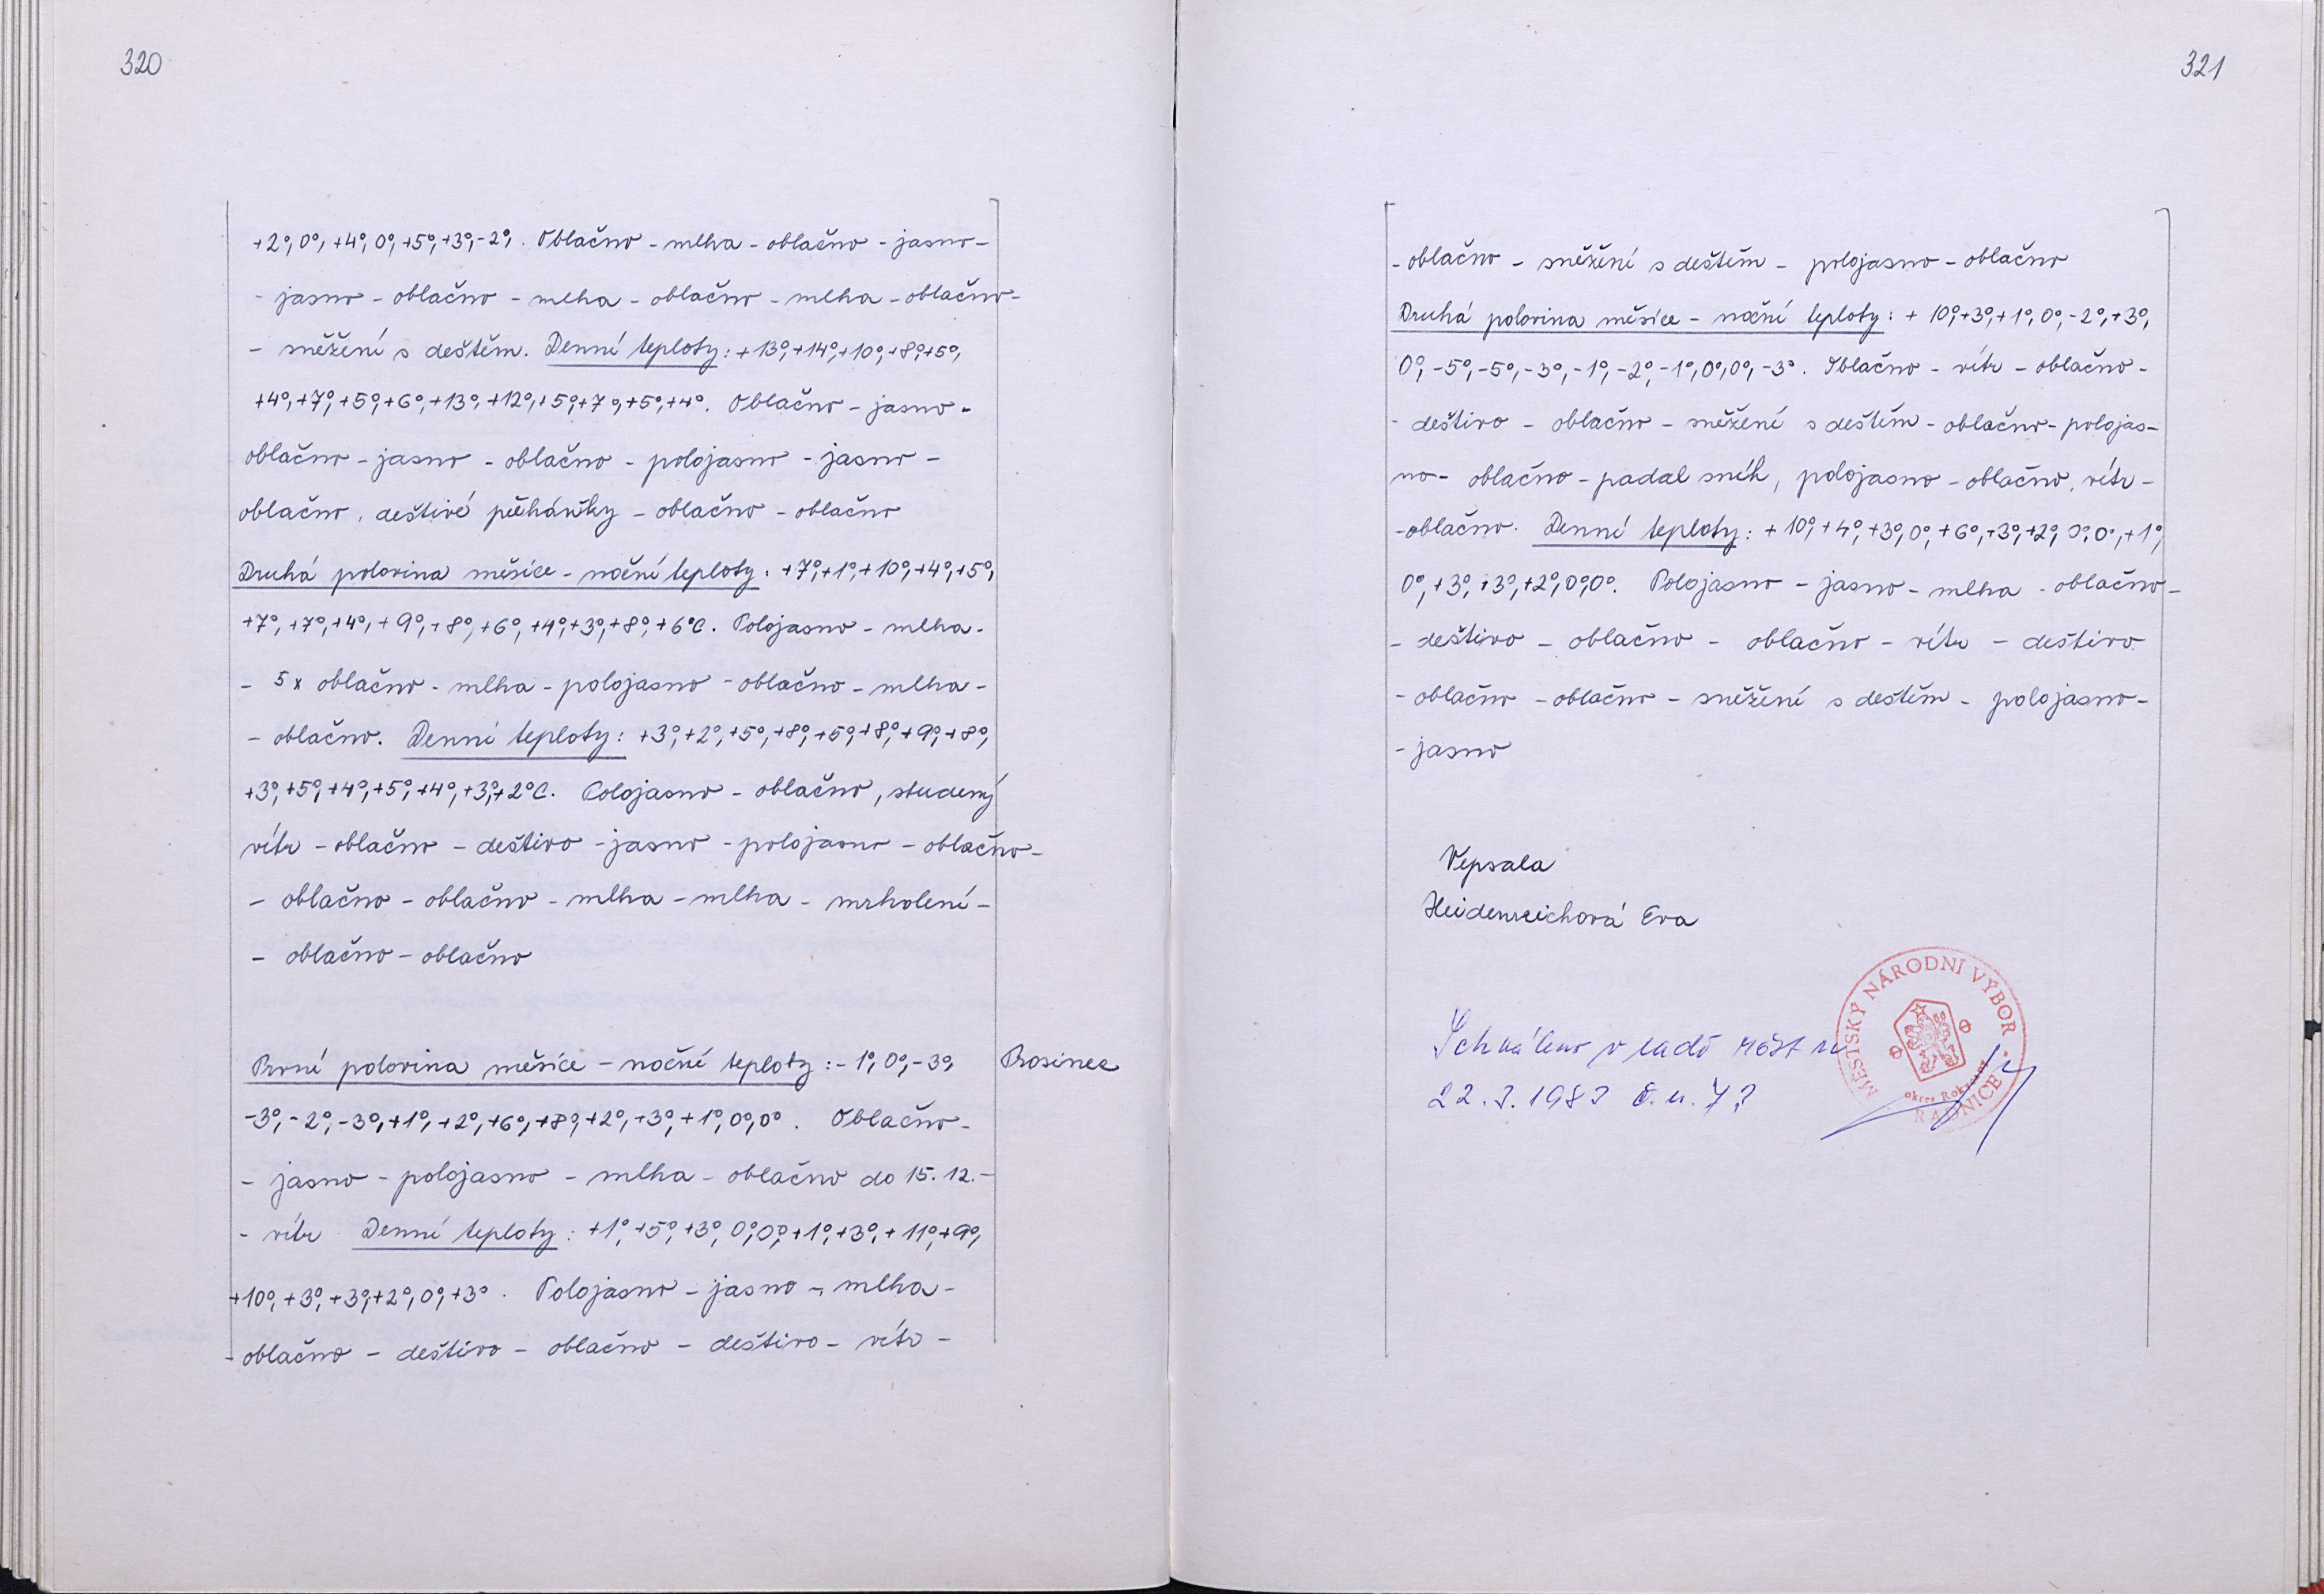 320
+2°, 0°, +4°, 0°, +5°, +3°, -2°. Oblačno - mlha - oblačno - jasno -
- jasno - oblačno - mlha - oblačno - mlha - oblačno -
- sněžení s deštěm. Denní teploty: +13°, +14°, +10°, +8°, +5°,
+4°, +7°, +5°, +6°, +13°, +12°, +5°, +7°, +5°, +4°. Oblačno - jasno -
oblačno - jasno - oblačno - polojasno - jasno -
oblačno, deštivé přeháňky - oblačno - oblačno
Druhá polovina měsíce - noční teploty: +7°, +1°, +10°, +4°, +5°,
+7°, +7°, +4°, +9°, +8°, +6°, +4°, +3°, +8°, +6°C. Polojasno - mlha -
- 5x oblačno - mlha - polojasno - oblačno - mlha -
- oblačno. Denní teploty: +3°, +2°, +5°, +8°, +5°, +8°, +9°, +8°,
+3°, +5°, +4°, +5°, +4°, +3°, +2°C. Polojasno - oblačno, studený
vítr - oblačno - deštivo - jasno - polojasno - oblačno -
- oblačno - oblačno - mlha - mlha - mrholení -
- oblačno - oblačno
První polovina měsíce - noční teploty: -1°, 0°, -3°,
Prosinec
-3°, -2°, -3°, +1°, +2°, +6°, +8°, +2°, +3°, +1°, 0°, 0°. Oblačno -
- jasno - polojasno - mlha - oblačno do 15. 12. -
- vítr Denní teploty: +1°, +5°, +3°, 0°, 0°, +1°, +3°, +11°, +9°,
+10°, +3°, +3°, +2°, 0°, +3°. Polojasno - jasno - mlha -
- oblačno - deštivo - oblačno - deštivo - vítr -
321
- oblačno - sněžení s deštěm - polojasno - oblačno
Druhá polovina měsíce - noční teploty: +10°, +3°, +1°, 0°, -2°, +3°,
0°, -5°, -5°, -3°, -1°, -2°, -1°, 0°, 0°, -3°. Oblačno - vítr - oblačno -
- deštivo - oblačno - sněžení s deštěm - oblačno - polojas-
no - oblačno - padal sníh, polojasno - oblačno, vítr -
- oblačno. Denní teploty: +10°, +4°, +3°, 0°, +6°, +3°, +2°, 0°, 0°, +1°,
0°, +3°, +3°, +2°, 0°, 0°. Polojasno - jasno - mlha - oblačno -
- deštivo - oblačno - oblačno - vítr - deštivo
- oblačno - oblačno - sněžení s deštěm - polojasno -
- jasno
Vepsala
Heidenreichová Eva
Schváleno v radě měst
22. 3. 1983
MĚSTSKÝ NÁRODNÍ VÝBOR
okres Rokycany
RADNICE